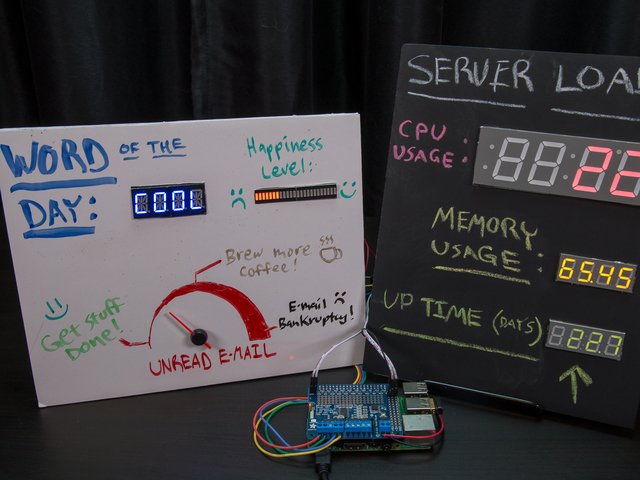 WORD OF THE
DAY:
COOL
Happiness
Level:
Brew more
Coffee!
Get Stuff
Done!
E-mail
Bankruptcy!
UNREAD E-MAIL
SERVER LOA
CPU
USAGE:
MEMORY
USAGE:
65.45
UP TIME (DAYS)
22.7